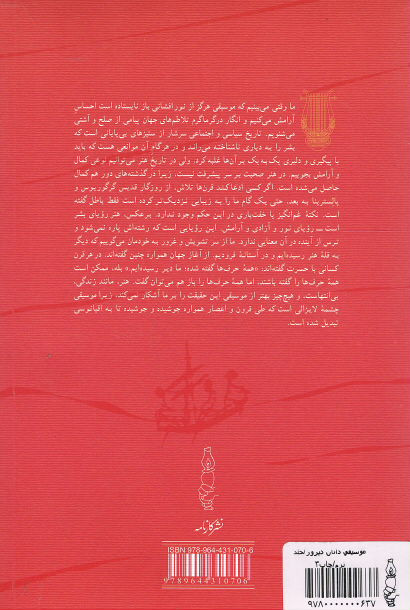 ما وقتی می‌بینیم که موسیقی هرگز از نورافشانی باز نایستاده است احساس
آرامش می‌کنیم و انگار درگرماگرم تلاطم‌های جهان پیامی از صلح و آشتی
می‌شنویم. تاریخ سیاسی و اجتماعی سرشار از ستیزهای بی‌پایانی است که
بشر را به دیاری ناشناخته می‌راند و در هرگام آن موانعی هست که باید
با پیگیری و دلیری یک به یک بر آن‌ها غلبه کرد. ولی در تاریخ هنر می‌توانیم نوعی کمال
و آرامش بجوییم. در هنر صحبت بر سر پیشرفت نیست، زیرا در گذشته‌های دور هم کمال
حاصل می‌شده است. اگر کسی ادعا کشد قرن‌ها تلاش، از روزگار قدیس گرگوریوس و
پالسترینا به بعد، حتی یک گام ما را به زیبایی نزدیک‌تر کرده است فقط باطل گفته
است. نکتهٔ غم‌انگیز یا خفت‌باری در این حکم وجود ندارد. برعکس، هنر رؤیای بشر
است ــ رؤیای نور و آزادی و آرامش. این رؤیایی است که رشته‌اش پاره نمی‌شود و
ترس از آینده در آن معنایی ندارد. ما از سر تشویش و غرور به خودمان می‌گوییم که دیگر
به قلهٔ هنر رسیده‌ایم و در آستانهٔ فرودیم. از آغاز جهان همواره چنین گفته‌اند. در هر قرن
کسانی با حسرت گفته‌اند: «همهٔ حرف‌ها گفته شده؛ ما دیر رسیده‌ایم.» بله، ممکن است
همهٔ حرف‌ها را گفته باشند، اما همهٔ حرف‌ها را باز هم می‌توان گفت. هنر، مانند زندگی،
بی‌انتهاست، و هیچ‌چیز بهتر از موسیقی این حقیقت را بر ما آشکار نمی‌کند، زیرا موسیقی
چشمهٔ لایزالی است که طی قرون و اعصار همواره جوشیده و جوشیده تا به اقیانوسی
تبدیل شده است.
نشر کارنامه
ISBN 978-964-431-070-6
9789644310706
موسیقی دانان دیروز/هند
نرم/چاپ۳
۹۷۸۰۰۰۰۰۰۰۶۳۷